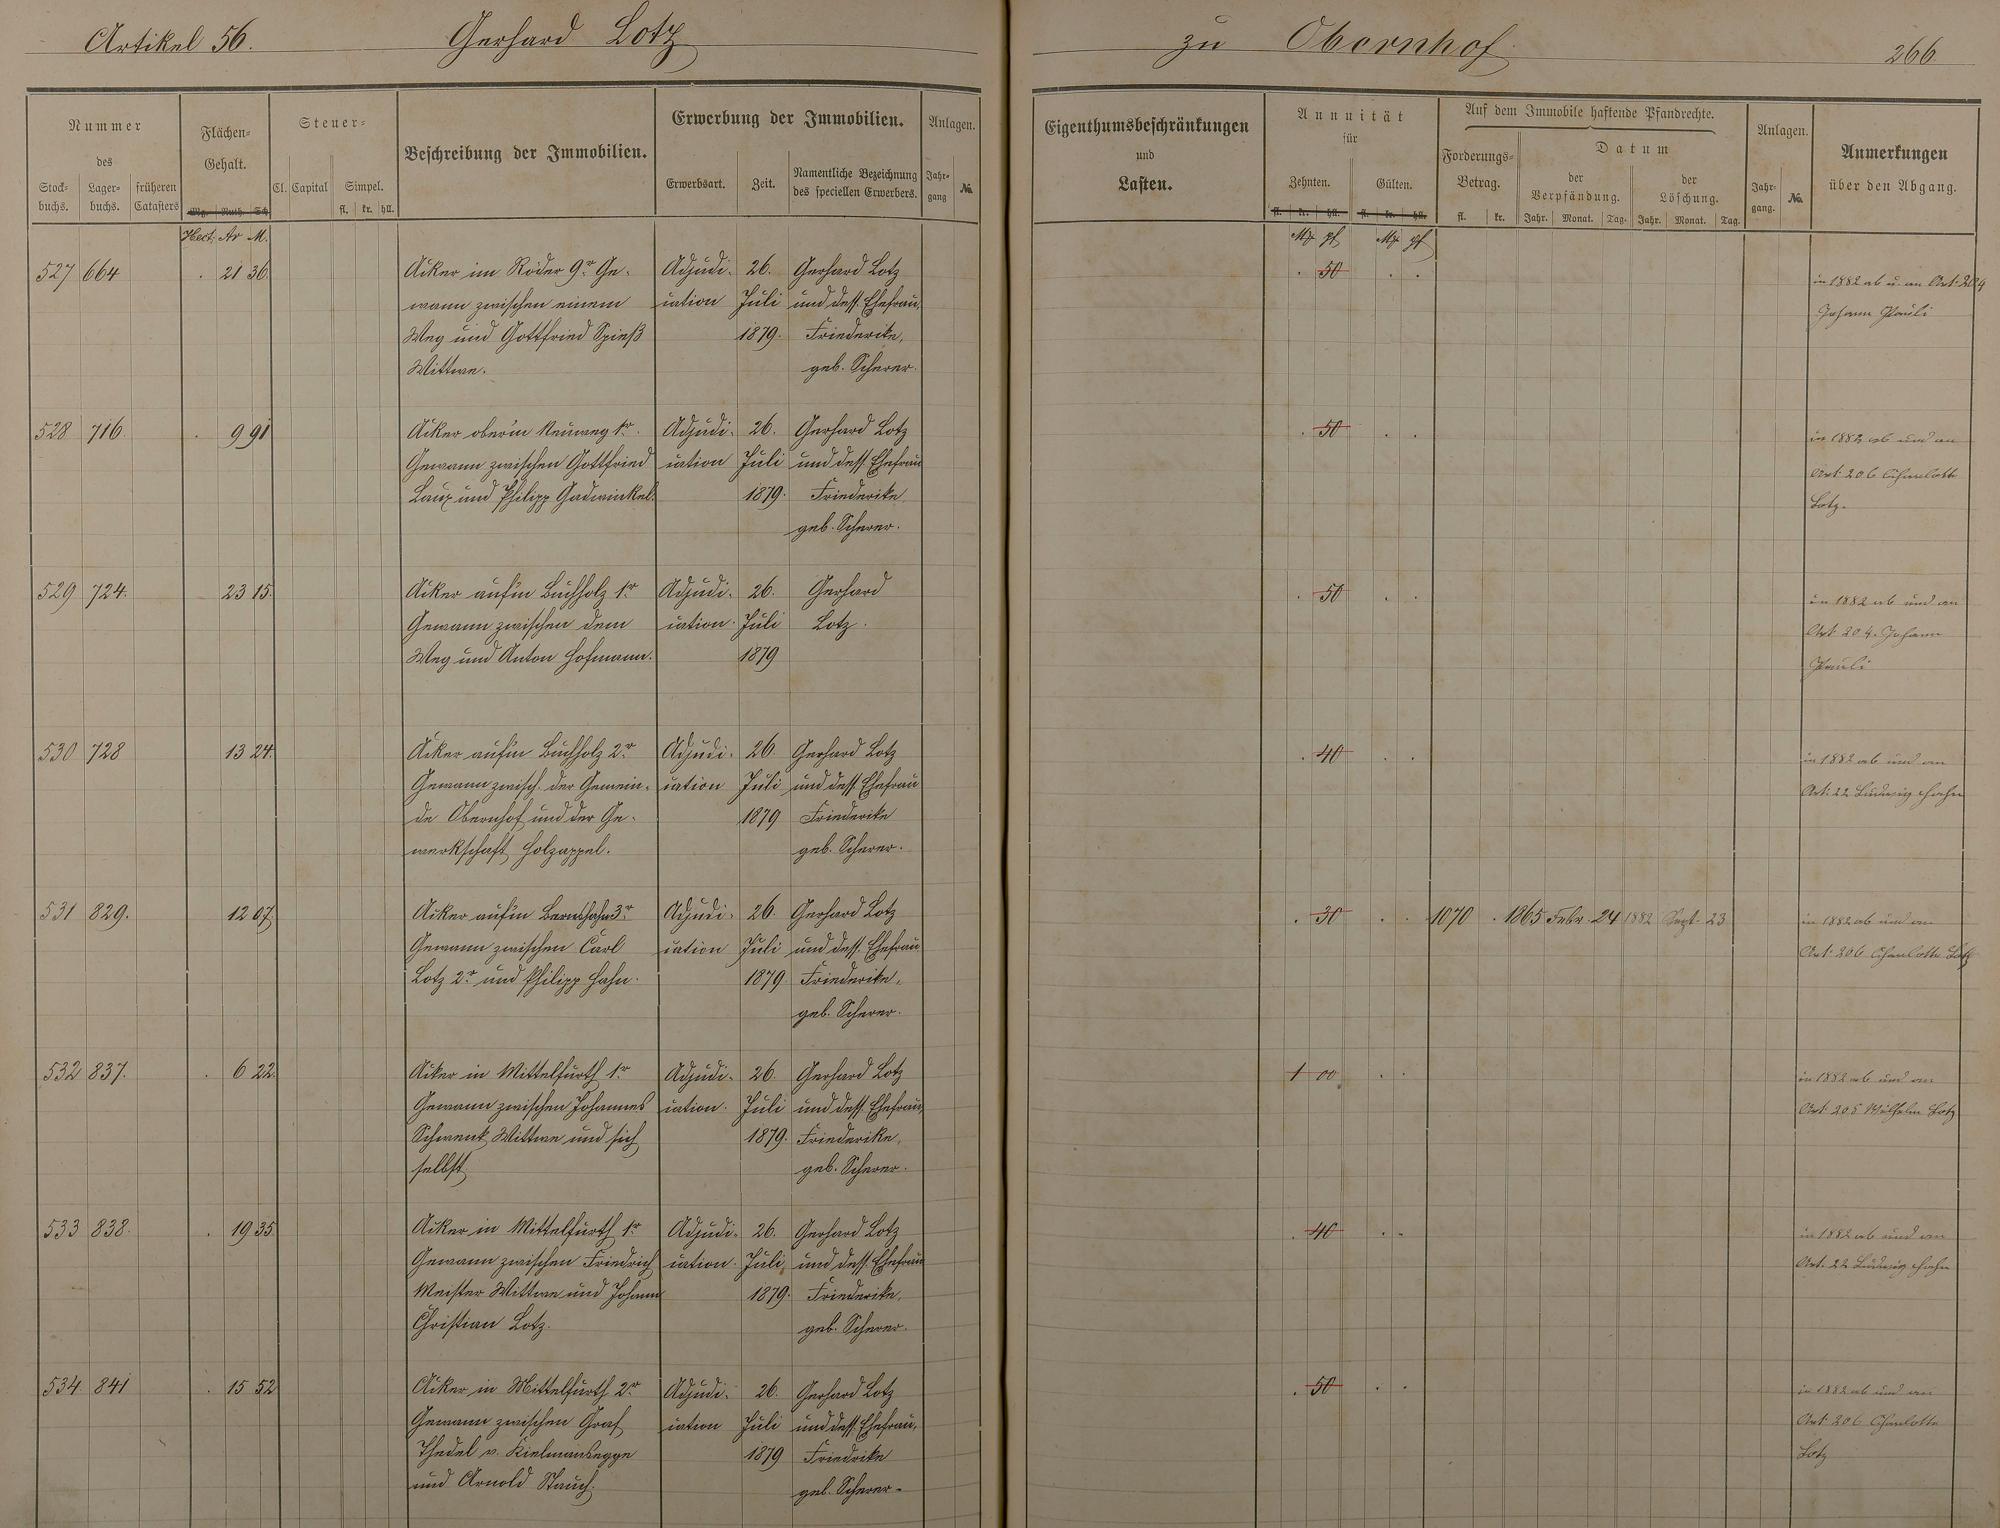 Artikel 56. Gerhard Lotz zu Obernhof. 266.
Nummer
des
Stock-
buchs.
Lager-
buchs.
früheren
Catasters
Flächen-
Gehalt.
Mg. Ruth. Sch.
Hect. Ar M.
Steuer-
Cl. Capital Simpel.
fl. kr. hll.
Beschreibung der Immobilien.
Erwerbung der Immobilien.
Erwerbsart. Zeit.
Namentliche Bezeichnung
des speciellen Erwerbers.
Anlagen.
Jahr-
gang
No.
Eigenthumsbeschränkungen
und
Lasten.
Annuität
für
Zehnten. Gülten.
fl. kr. hll. fl. kr. hll.
Mk pf Mk pf
Auf dem Immobile haftende Pfandrechte.
Forderungs-
Betrag.
fl. kr.
Datum
der
Verpfändung.
Jahr. Monat. Tag.
der
Löschung.
Jahr. Monat. Tag.
Anlagen.
Jahr-
gang.
No.
Anmerkungen
über den Abgang.
527 664 . 21 36
Acker im Röder 9r. Ge-
wann zwischen einem
Weg und Gottfried Spieß
Wittwe.
Adjudi-
cation
26.
Juli
1879.
Gerhard Lotz
und dess. Ehefrau,
Friederike,
geb. Scherer.
. 50 . .
in 1882 ab u. an Art. 204
Johann Pauli
528 716. . 9 91
Acker ober'm Neuweg 1r.
Gewann zwischen Gottfried
Laux und Philipp Gadwinkel.
Adjudi-
cation
26.
Juli
1879.
Gerhard Lotz
und dess. Ehefrau
Friederike
geb. Scherer.
. 50 . .
in 1882 ab und an
Art. 206 Charlotte
Lotz.
529 724. 23 15.
Acker auf'm Buchholz 1r.
Gewann zwischen dem
Weg und Anton Hofmann.
Adjudi-
cation.
26.
Juli
1879
Gerhard
Lotz.
. 50 . .
in 1882 ab und an
Art. 204. Johann
Pauli
530 728 13 24.
Acker auf'm Buchholz 2r.
Gewann zwisch. der Gemein-
de Obernhof und der Ge-
werkschaft Holzappel.
Adjudi-
cation
26
Juli
1879
Gerhard Lotz
und dess. Ehefrau
Friederike
geb. Scherer.
. 40 . .
in 1882 ab und an
Art. 22 Ludwig Hahn
531 829. 12 07.
Acker auf'm Bernshahn 3r.
Gewann zwischen Carl
Lotz 2r. und Philipp Hahn.
Adjudi-
cation
26.
Juli
1879.
Gerhard Lotz
und dess. Ehefrau
Friederike,
geb. Scherer.
. 30 . . 1070 . 1865 Febr. 24 1882 Sept. 23
in 1882 ab und an
Art. 206 Charlotte Lotz
532 837. . 6 22.
Acker in Mittelfurth 1r.
Gewann zwischen Johannes
Schwenk Wittwe und sich
selbst.
Adjudi-
cation.
26.
Juli
1879.
Gerhard Lotz
und dess. Ehefrau,
Friederike,
geb. Scherer.
1 00 . .
in 1882 ab und an
Art. 205 Wilhelm Lotz
533 838. . 19 35
Acker in Mittelfurth 1r.
Gewann zwischen Friedrich
Meister Wittwe und Johann
Christian Lotz.
Adjudi-
cation.
26.
Juli
1879.
Gerhard Lotz
und dess. Ehefrau
Friederike,
geb. Scherer.
. 40 . .
in 1882 ab und an
Art. 22 Ludwig Hahn
534 841 . 15 52
Acker in Mittelfurth 2r.
Gewann zwischen Graf
Thedel v. Kielmansegge
und Arnold Stauch.
Adjudi-
cation
26.
Juli
1879
Gerhard Lotz
und dess. Ehefrau,
Friedrike
geb. Scherer.
. 50 . .
in 1882 ab und an
Art. 206 Charlotte
Lotz